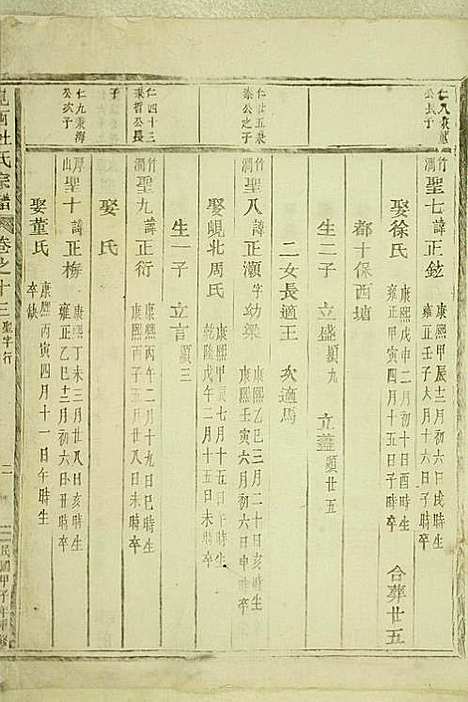 仁八秉
公長子
竹澗 聖七 諱正鉉 康熙甲辰十二月初六日戌時生
雍正壬子六月十六日子時卒
娶徐氏 康熙戊申二月初十日酉時生
雍正甲寅四月十五子時卒 合葬廿五
都十保西塘
生二子 立盛 顯九 立藎 顯廿五
二女長適王 次適馬
仁廿五秉
公之子
竹澗 聖八 諱正灝 字幼梁 康熙乙巳三月二十日亥時生
康熙壬寅六月初六日申時卒
娶峴北周氏 康熙甲寅七月十五日午時生
乾隆戊午二月十五日未時卒
生一子 立言 顯三
仁四十三
秉晉公長
子
竹澗 聖九 諱正衍 康熙丙午二月十九日巳時生
康熙丙子五月廿八日未時卒
娶 氏
仁九秉海
公次子
厚山 聖十 諱正梅 康熙丁未三月廿八日亥時生
雍正乙巳十二月初六日丑時卒
娶董氏 康熙丙寅四月十一日午時生
卒缺
杜氏宗譜 卷之十三 聖字行 二 民國甲子年